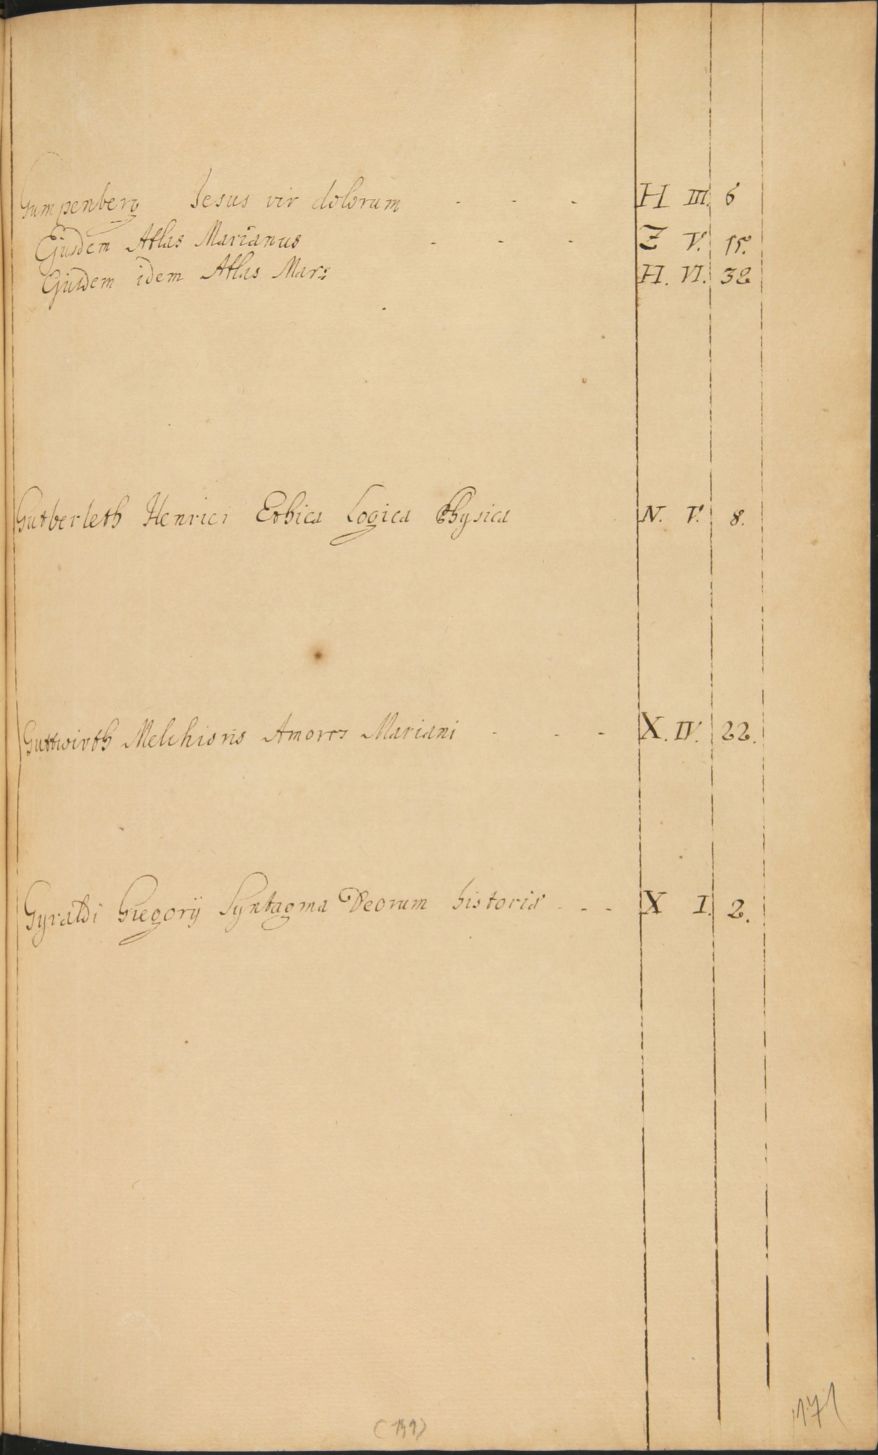 Gumpenberg Jesus vir dolorum - - - H III. 6
Ejusdem Atlas Marianus - - - Z V. 15.
Ejusdem idem Atlas Mars H. VI. 32
Gutberleth Henrici Ethica Logica Physica N. V. 8.
Guttwirth Melchioris Amores Mariani - - - X. IV. 22.
Gyraldi Gregorij Syntagma Deorum historia - - - X I. 2.
171